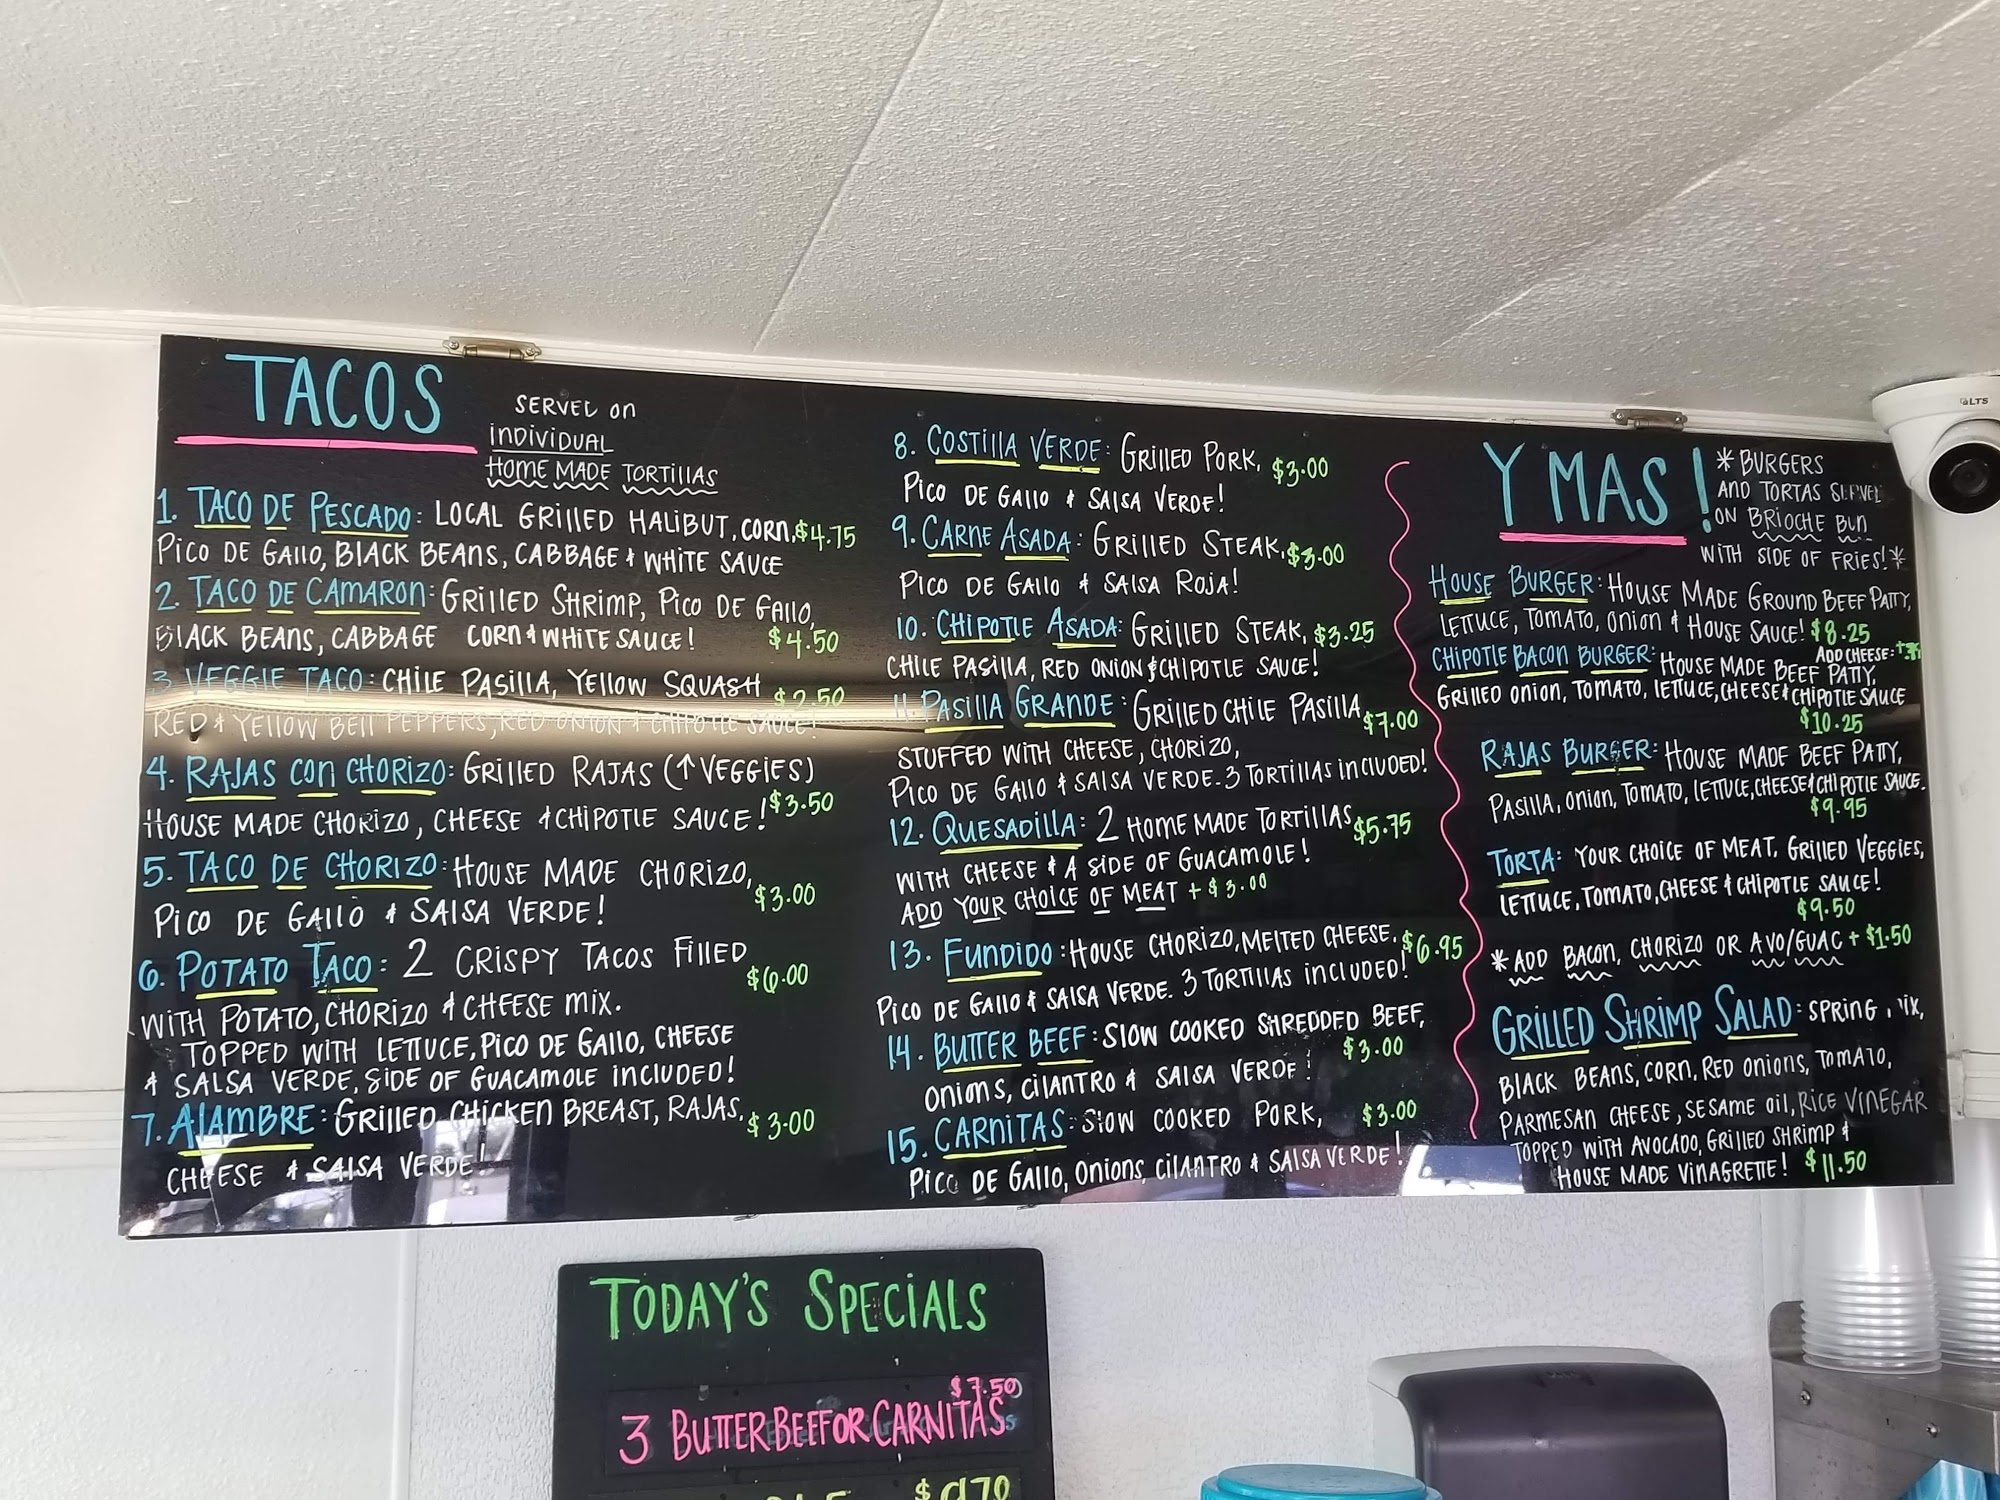 TACOS
SERVED ON
INDIVIDUAL
HOME MADE TORTILLAS
1. TACO DE PESCADO: LOCAL GRILLED HALIBUT, CORN, $4.75
PICO DE GALLO, BLACK BEANS, CABBAGE & WHITE SAUCE
2. TACO DE CAMARON: GRILLED SHRIMP, PICO DE GALLO,
BLACK BEANS, CABBAGE CORN & WHITE SAUCE! $4.50
3 VEGGIE TACO: CHILE PASILLA, YELLOW SQUASH $2.50
RED & YELLOW BELL PEPPERS, RED ONION & CHIPOTLE SAUCE!
4. RAJAS CON CHORIZO: GRILLED RAJAS (↑ VEGGIES)
HOUSE MADE CHORIZO, CHEESE & CHIPOTLE SAUCE! $3.50
5. TACO DE CHORIZO: HOUSE MADE CHORIZO, $3.00
PICO DE GALLO & SALSA VERDE!
6. POTATO TACO: 2 CRISPY TACOS FILLED $6.00
WITH POTATO, CHORIZO & CHEESE MIX.
TOPPED WITH LETTUCE, PICO DE GALLO, CHEESE
& SALSA VERDE, SIDE OF GUACAMOLE INCLUDED!
7. ALAMBRE: GRILLED CHICKEN BREAST, RAJAS, $3.00
CHEESE & SALSA VERDE!
8. COSTILLA VERDE: GRILLED PORK, $3.00
PICO DE GALLO & SALSA VERDE!
9. CARNE ASADA: GRILLED STEAK, $3.00
PICO DE GALLO & SALSA ROJA!
10. CHIPOTLE ASADA: GRILLED STEAK, $3.25
CHILE PASILLA, RED ONION & CHIPOTLE SAUCE!
11. PASILLA GRANDE: GRILLED CHILE PASILLA $7.00
STUFFED WITH CHEESE, CHORIZO,
PICO DE GALLO & SALSA VERDE. 3 TORTILLAS INCLUDED!
12. QUESADILLA: 2 HOME MADE TORTILLAS $5.75
WITH CHEESE & A SIDE OF GUACAMOLE!
ADD YOUR CHOICE OF MEAT + $3.00
13. FUNDIDO: HOUSE CHORIZO, MELTED CHEESE, $6.95
PICO DE GALLO & SALSA VERDE. 3 TORTILLAS INCLUDED!
14. BUTTER BEEF: SLOW COOKED SHREDDED BEEF,
$3.00
ONIONS, CILANTRO & SALSA VERDE!
15. CARNITAS: SLOW COOKED PORK, $3.00
PICO DE GALLO, ONIONS, CILANTRO & SALSA VERDE!
Y MAS!
* BURGERS
AND TORTAS SERVED
ON BRIOCHE BUN
WITH SIDE OF FRIES! *
HOUSE BURGER: HOUSE MADE GROUND BEEF PATTY,
LETTUCE, TOMATO, ONION & HOUSE SAUCE! $8.25
ADD CHEESE:
CHIPOTLE BACON BURGER: HOUSE MADE BEEF PATTY,
GRILLED ONION, TOMATO, LETTUCE, CHEESE & CHIPOTLE SAUCE
$10.25
RAJAS BURGER: HOUSE MADE BEEF PATTY,
PASILLA, ONION, TOMATO, LETTUCE, CHEESE & CHIPOTLE SAUCE.
$9.95
TORTA: YOUR CHOICE OF MEAT, GRILLED VEGGIES,
LETTUCE, TOMATO, CHEESE & CHIPOTLE SAUCE!
$9.50
* ADD BACON, CHORIZO OR AVO/GUAC + $1.50
GRILLED SHRIMP SALAD: SPRING MIX,
BLACK BEANS, CORN, RED ONIONS, TOMATO,
PARMESAN CHEESE, SESAME OIL, RICE VINEGAR
TOPPED WITH AVOCADO, GRILLED SHRIMP &
HOUSE MADE VINAGRETTE! $11.50
LTS
TODAY'S SPECIALS
$7.50
3 BUTTER BEEF OR CARNITAS